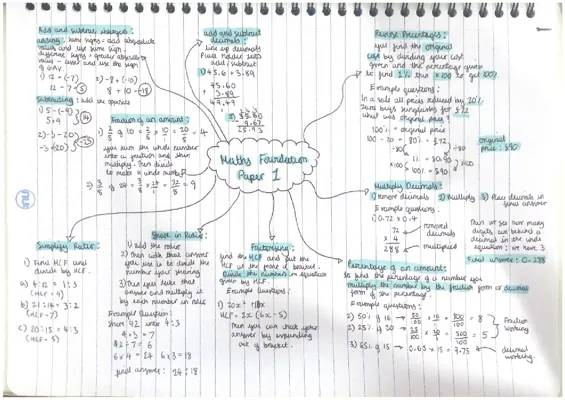 Add and subtract integers:
adding: same signs = add absolute
value and use same sign.
different signs = greater absolute
value - lesser and use the sign
of GAV.
1) 12 - (-7)
12 - 7
5
2) -8 + (-10)
8 + 10
-18
Subtracting: add the opposite
1) 5 - (-9)
5 + 9
14
2) -3 - 20
-3
-23
add and subtract
decimals:
Line up decimals
Place holder zeros
add / subtract
1) 45.6 + 3.89
45.60
+ 3.89
49.49
Fraction of an amount:
1) 2/5 of 10 = 2/5 × 10/1 = 20/5 = 4
you turn the whole number
into a fraction and then
multiply. Then divide
to make a whole number.
2) 3/8 of 24 = 3/8 × 24/1 = 72/8 = 9
Maths Foundation
Paper 1
Reverse Percentages:
you find the original
cost by dividing your cost
given and the percentage given
to find 1% then ×100 to get 100%
Example questions:
In a sale all prices reduced by 20%
Sam buys sunglasses for £72
what was original price?
100% = original price
100 - 20 = 80% = £72
1% = £0.90
×100
100% = £90
original
price: £90
Multiply Decimals:
1) remove decimals 2) Multiply 3) Place decimals in
final answer
Example questions:
1) 0.72 × 0.4
72
× 4
288
removed
decimals
multiplied
Then we see how many
digits are behind a
decimal in the whole
equation: we have 3
final answer: 0.288
Simplify Ratio:
1) Find HCF and
divide by HCF.
a) 4:12 = 1:3
(HCF = 4)
b) 21:14 = 3:2
(HCF = 7)
c) 20:15 = 4:3
(HCF = 5)
Share in Ratio:
1) add the ratio
2) Then with that answer
you use it to divide the
number your sharing
3) Then you take that
answer and multiply it
by each number in ratio
Example Question:
Share 42 into 4:3
4 + 3 = 7
42 ÷ 7 = 6
6 × 4 = 24 6 × 3 = 18
final answer: 24:18
Factorising:
find the HCF and put the
HCF at the front of bracket.
Divide the numbers in equation
given by HCF.
Example Questions:
HCF = 2x (6x - 5)
Then you can check your
answer by expanding
out of bracket.
Percentage of an amount:
to find the percentage of a number you
multiply the number by the fraction form or decimal
form of the percentage.
Example questions:
Fraction
working
decimal
working.